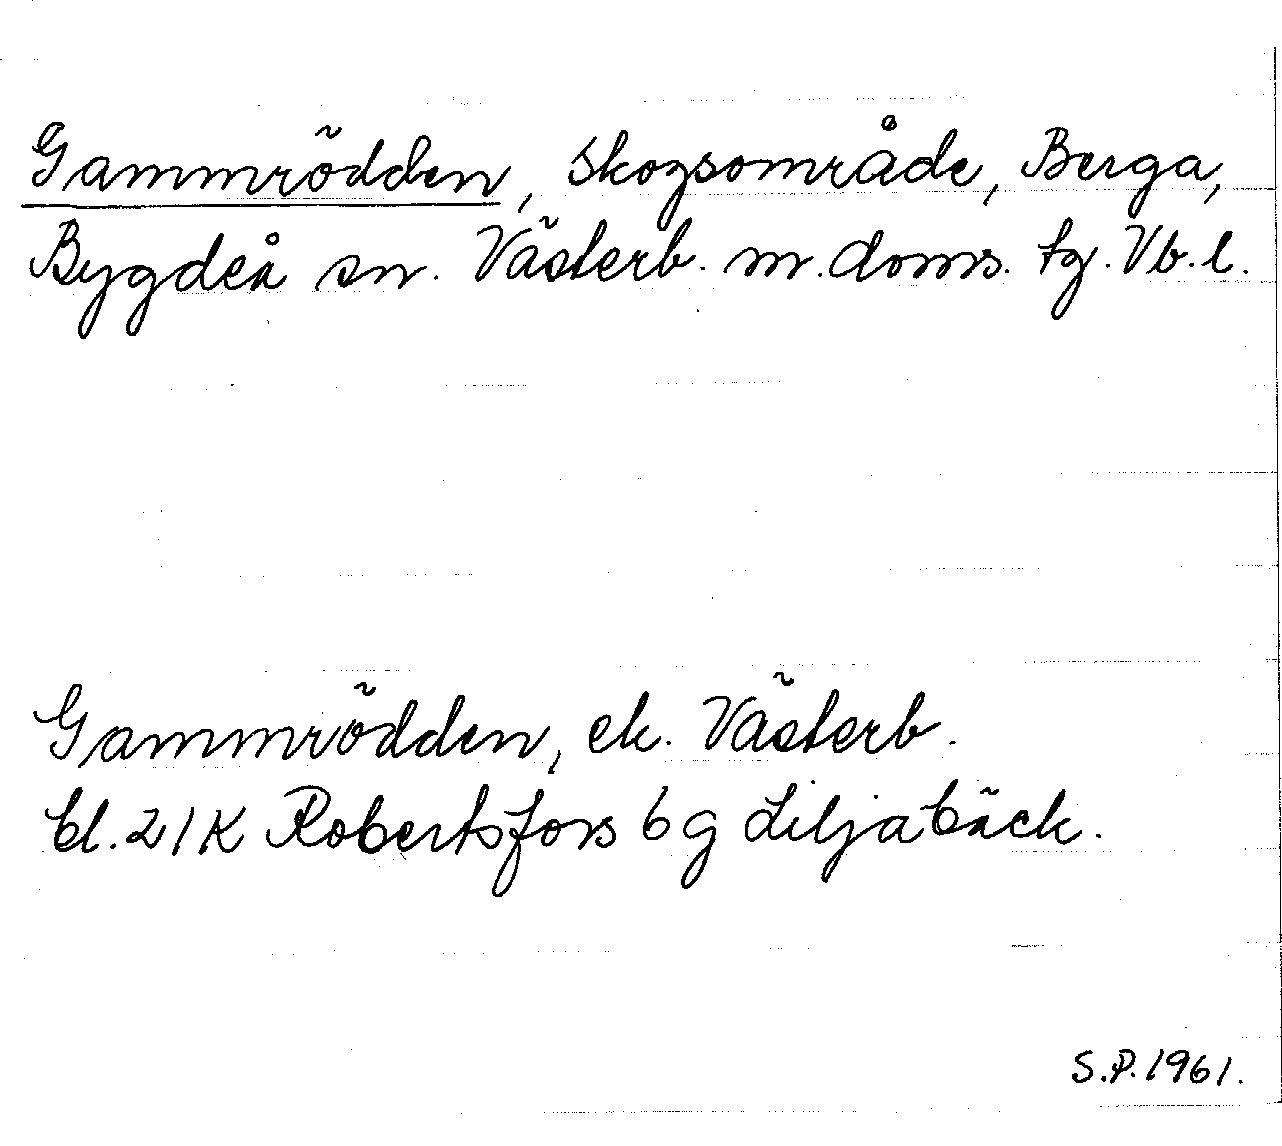 Gammrödden, skogsområde, Berga,
Bygdeå sn. Västerb. m. doms. tg. Vb. l.
Gammrödden, ek. Västerb.
bl. 21K Robertsfors 6 g Liljabäck.
S.P. 1961.